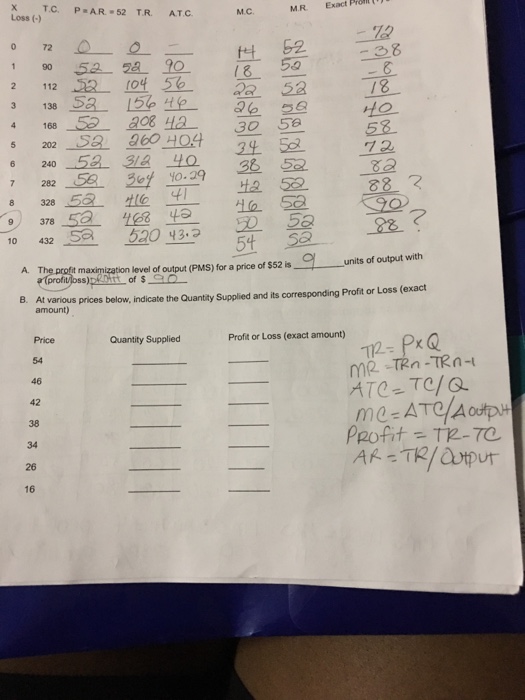 X T.C. P=AR.=52 T.R. A.T.C. M.C. M.R. Exact
Loss (-)
0 72 0 0 – -72
14 52
1 90 52 52 90 -38
18 52
2 112 52 104 56 -8
22 52
3 138 52 156 46 18
26 52
4 168 52 208 42 40
30 52
5 202 52 260 40.4 58
34 52
6 240 52 312 40 72
38 52
7 282 52 364 40.29 82
42 52
8 328 52 416 41 88 ?
46 52
9 378 52 468 42 90
50 52
10 432 52 520 43.2 88 ?
54 52
A. The profit maximization level of output (PMS) for a price of $52 is 9 units of output with
a (profit/loss) profit of $ 90
B. At various prices below, indicate the Quantity Supplied and its corresponding Profit or Loss (exact
amount)
Price Quantity Supplied Profit or Loss (exact amount)
54
46
42
38
34
26
16
TR = P x Q
MR = TRn - TRn-1
ATC = TC/Q
MC = ΔTC/Δ output
Profit = TR - TC
AR = TR/Output